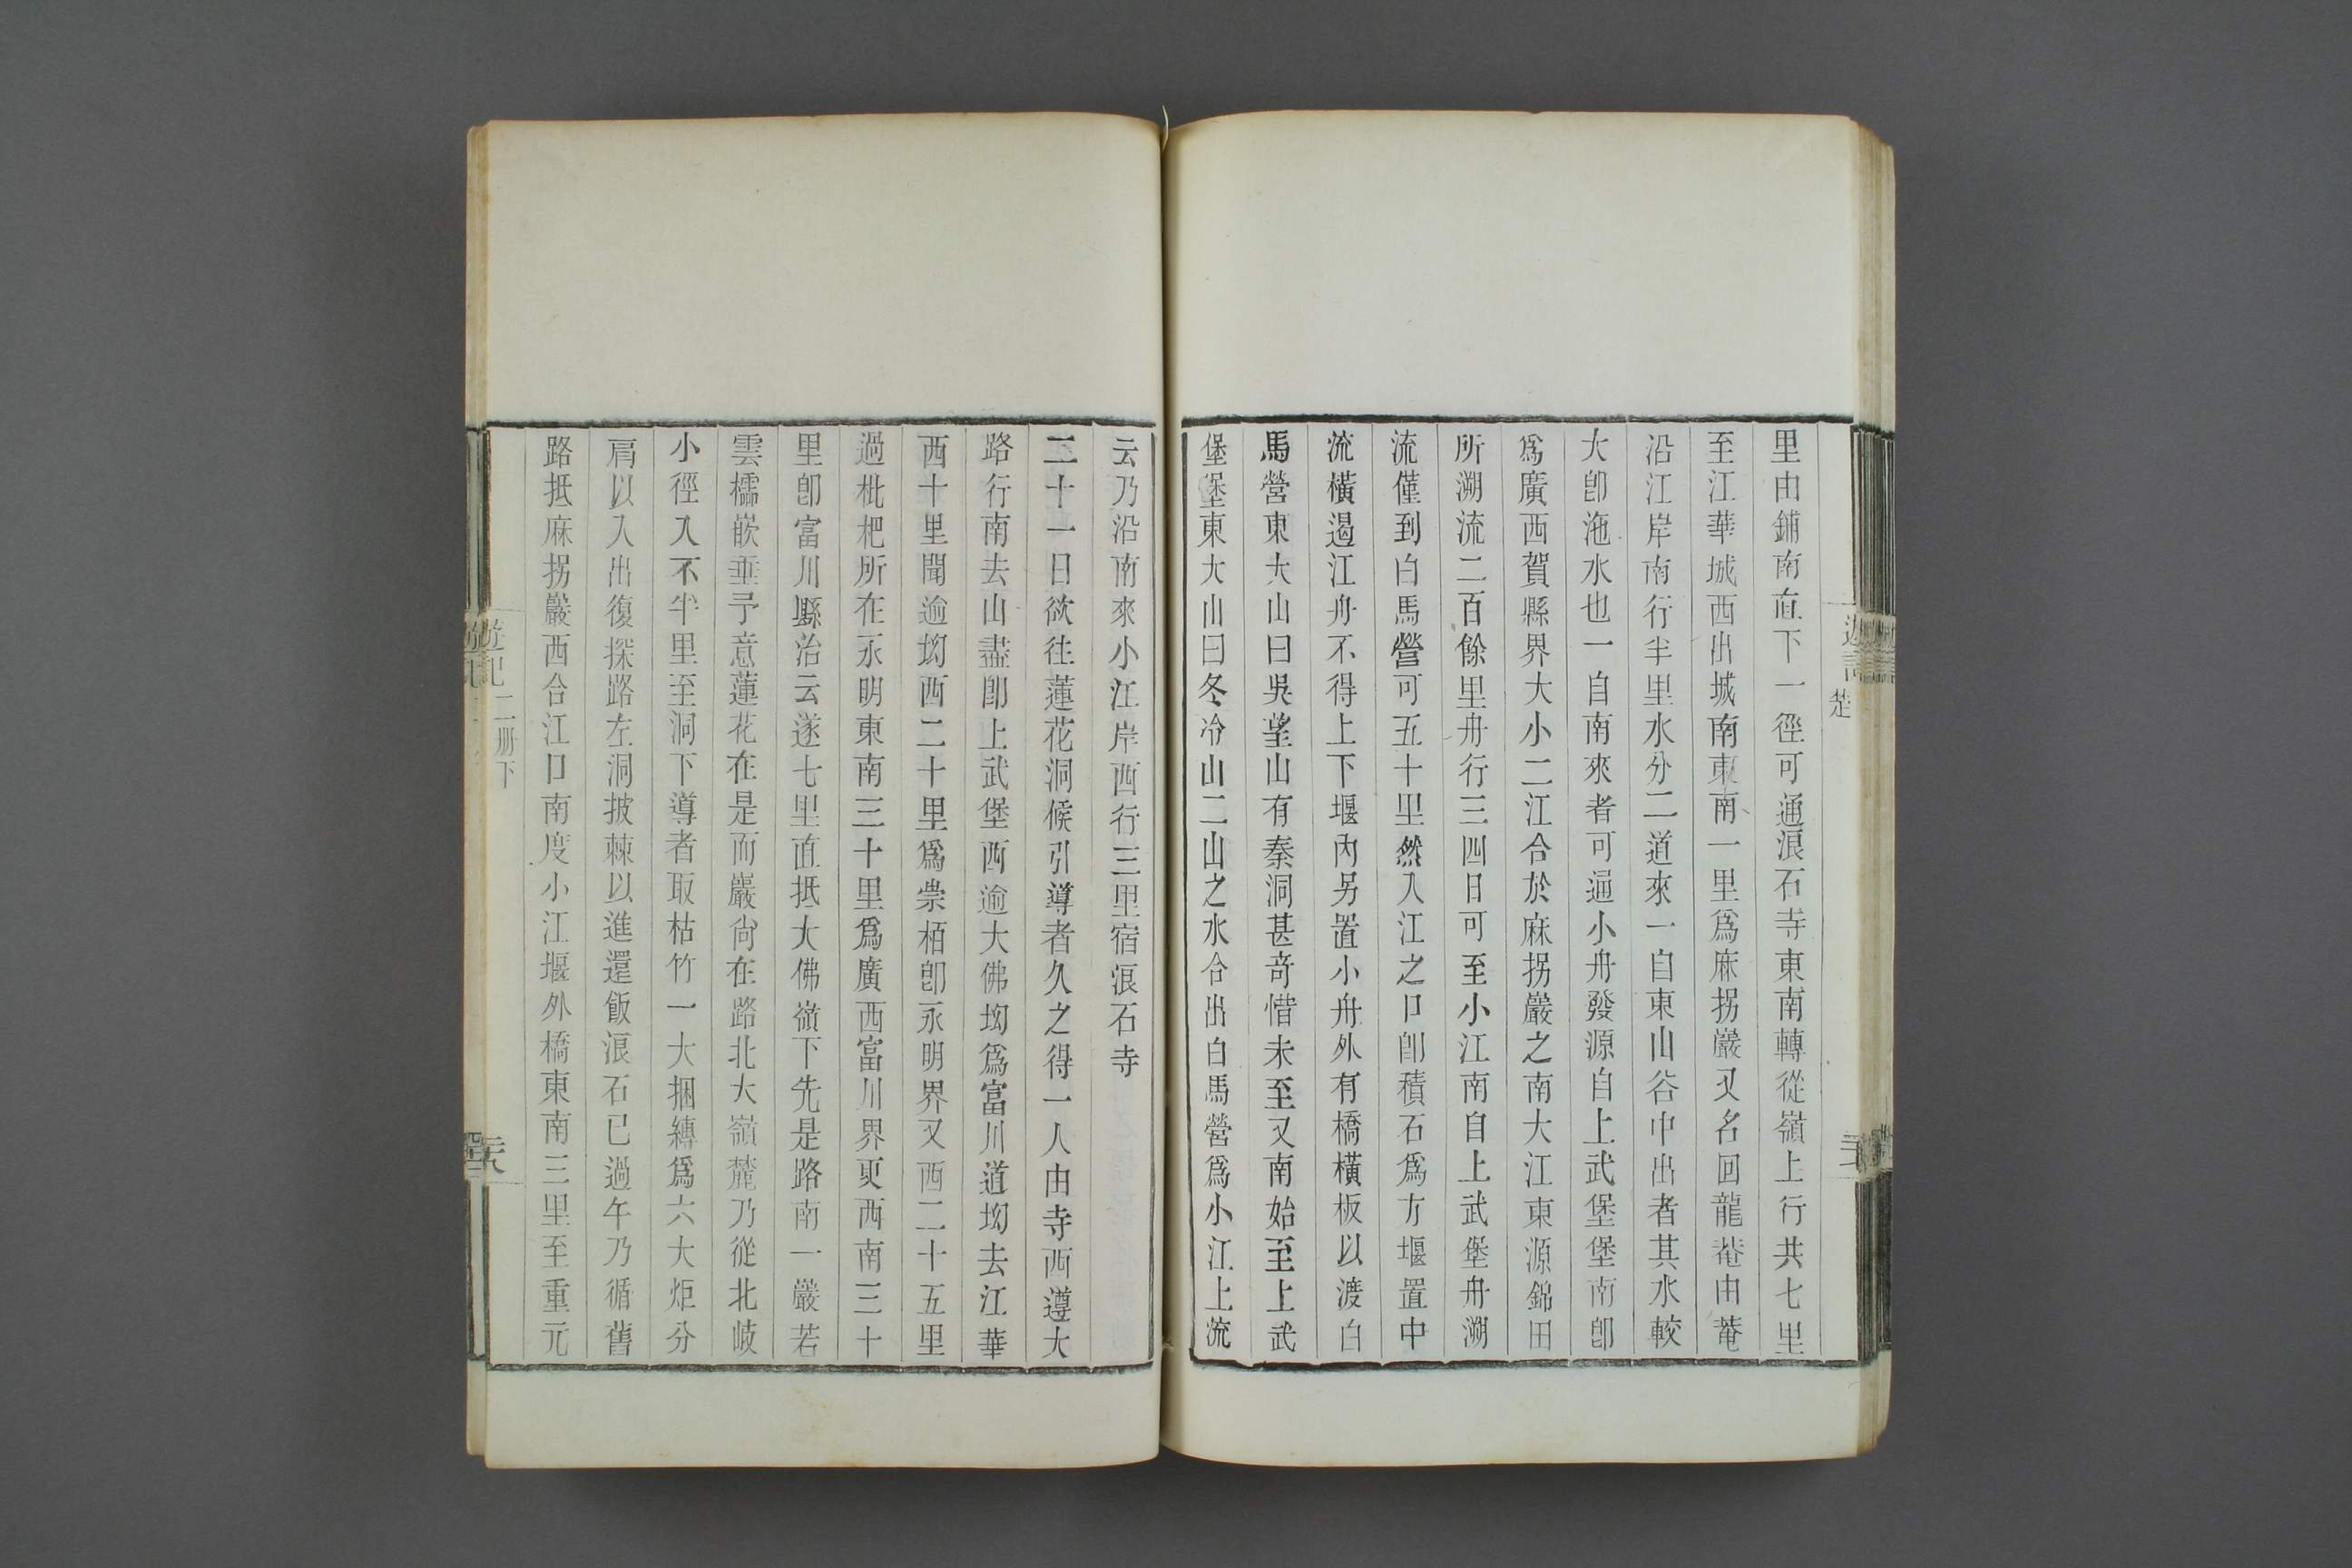 里由鋪南直下一徑可通浪石寺東南轉從嶺上行共七里
至江華城西出城南東南一里爲麻拐巖又名回龍菴由菴
沿江岸南行半里水分二道來一自東山谷中出者其水較
大卽沲水也一自南來者可通小舟發源自上武堡堡南卽
爲廣西賀縣界大小二江合於麻拐巖之南大江東源錦田
所溯流二百餘里舟行三四日可至小江南自上武堡舟溯
流僅到白馬營可五十里然入江之口卽積石爲方堰置中
流橫遏江舟不得上下堰內另置小舟外有橋橫板以渡白
馬營東大山曰吳望山有秦洞甚奇惜未至又南始至上武
堡堡東大山曰冬冷山二山之水合出白馬營爲小江上流
云乃沿南來小江岸西行三里宿浪石寺
二十一日欲往蓮花洞候引導者久之得一人由寺西遵大
路行南去山盡卽上武堡西逾大佛坳爲富川道坳去江華
西十里聞逾坳西二十里爲崇栢卽永明界又西二十五里
過枇杷所在永明東南三十里爲廣西富川界更西南三十
里卽富川縣治云遂七里直抵大佛嶺下先是路南一巖若
雲㰚嵌垂予意蓮花在是而巖尙在路北大嶺麓乃從北岐
小徑入不半里至洞下導者取枯竹一大捆縛爲六大炬分
肩以入出復探路左洞披棘以進還飯浪石已過午乃循舊
路抵麻拐巖西合江口南度小江堰外橋東南三里至重元
遊記
二册下